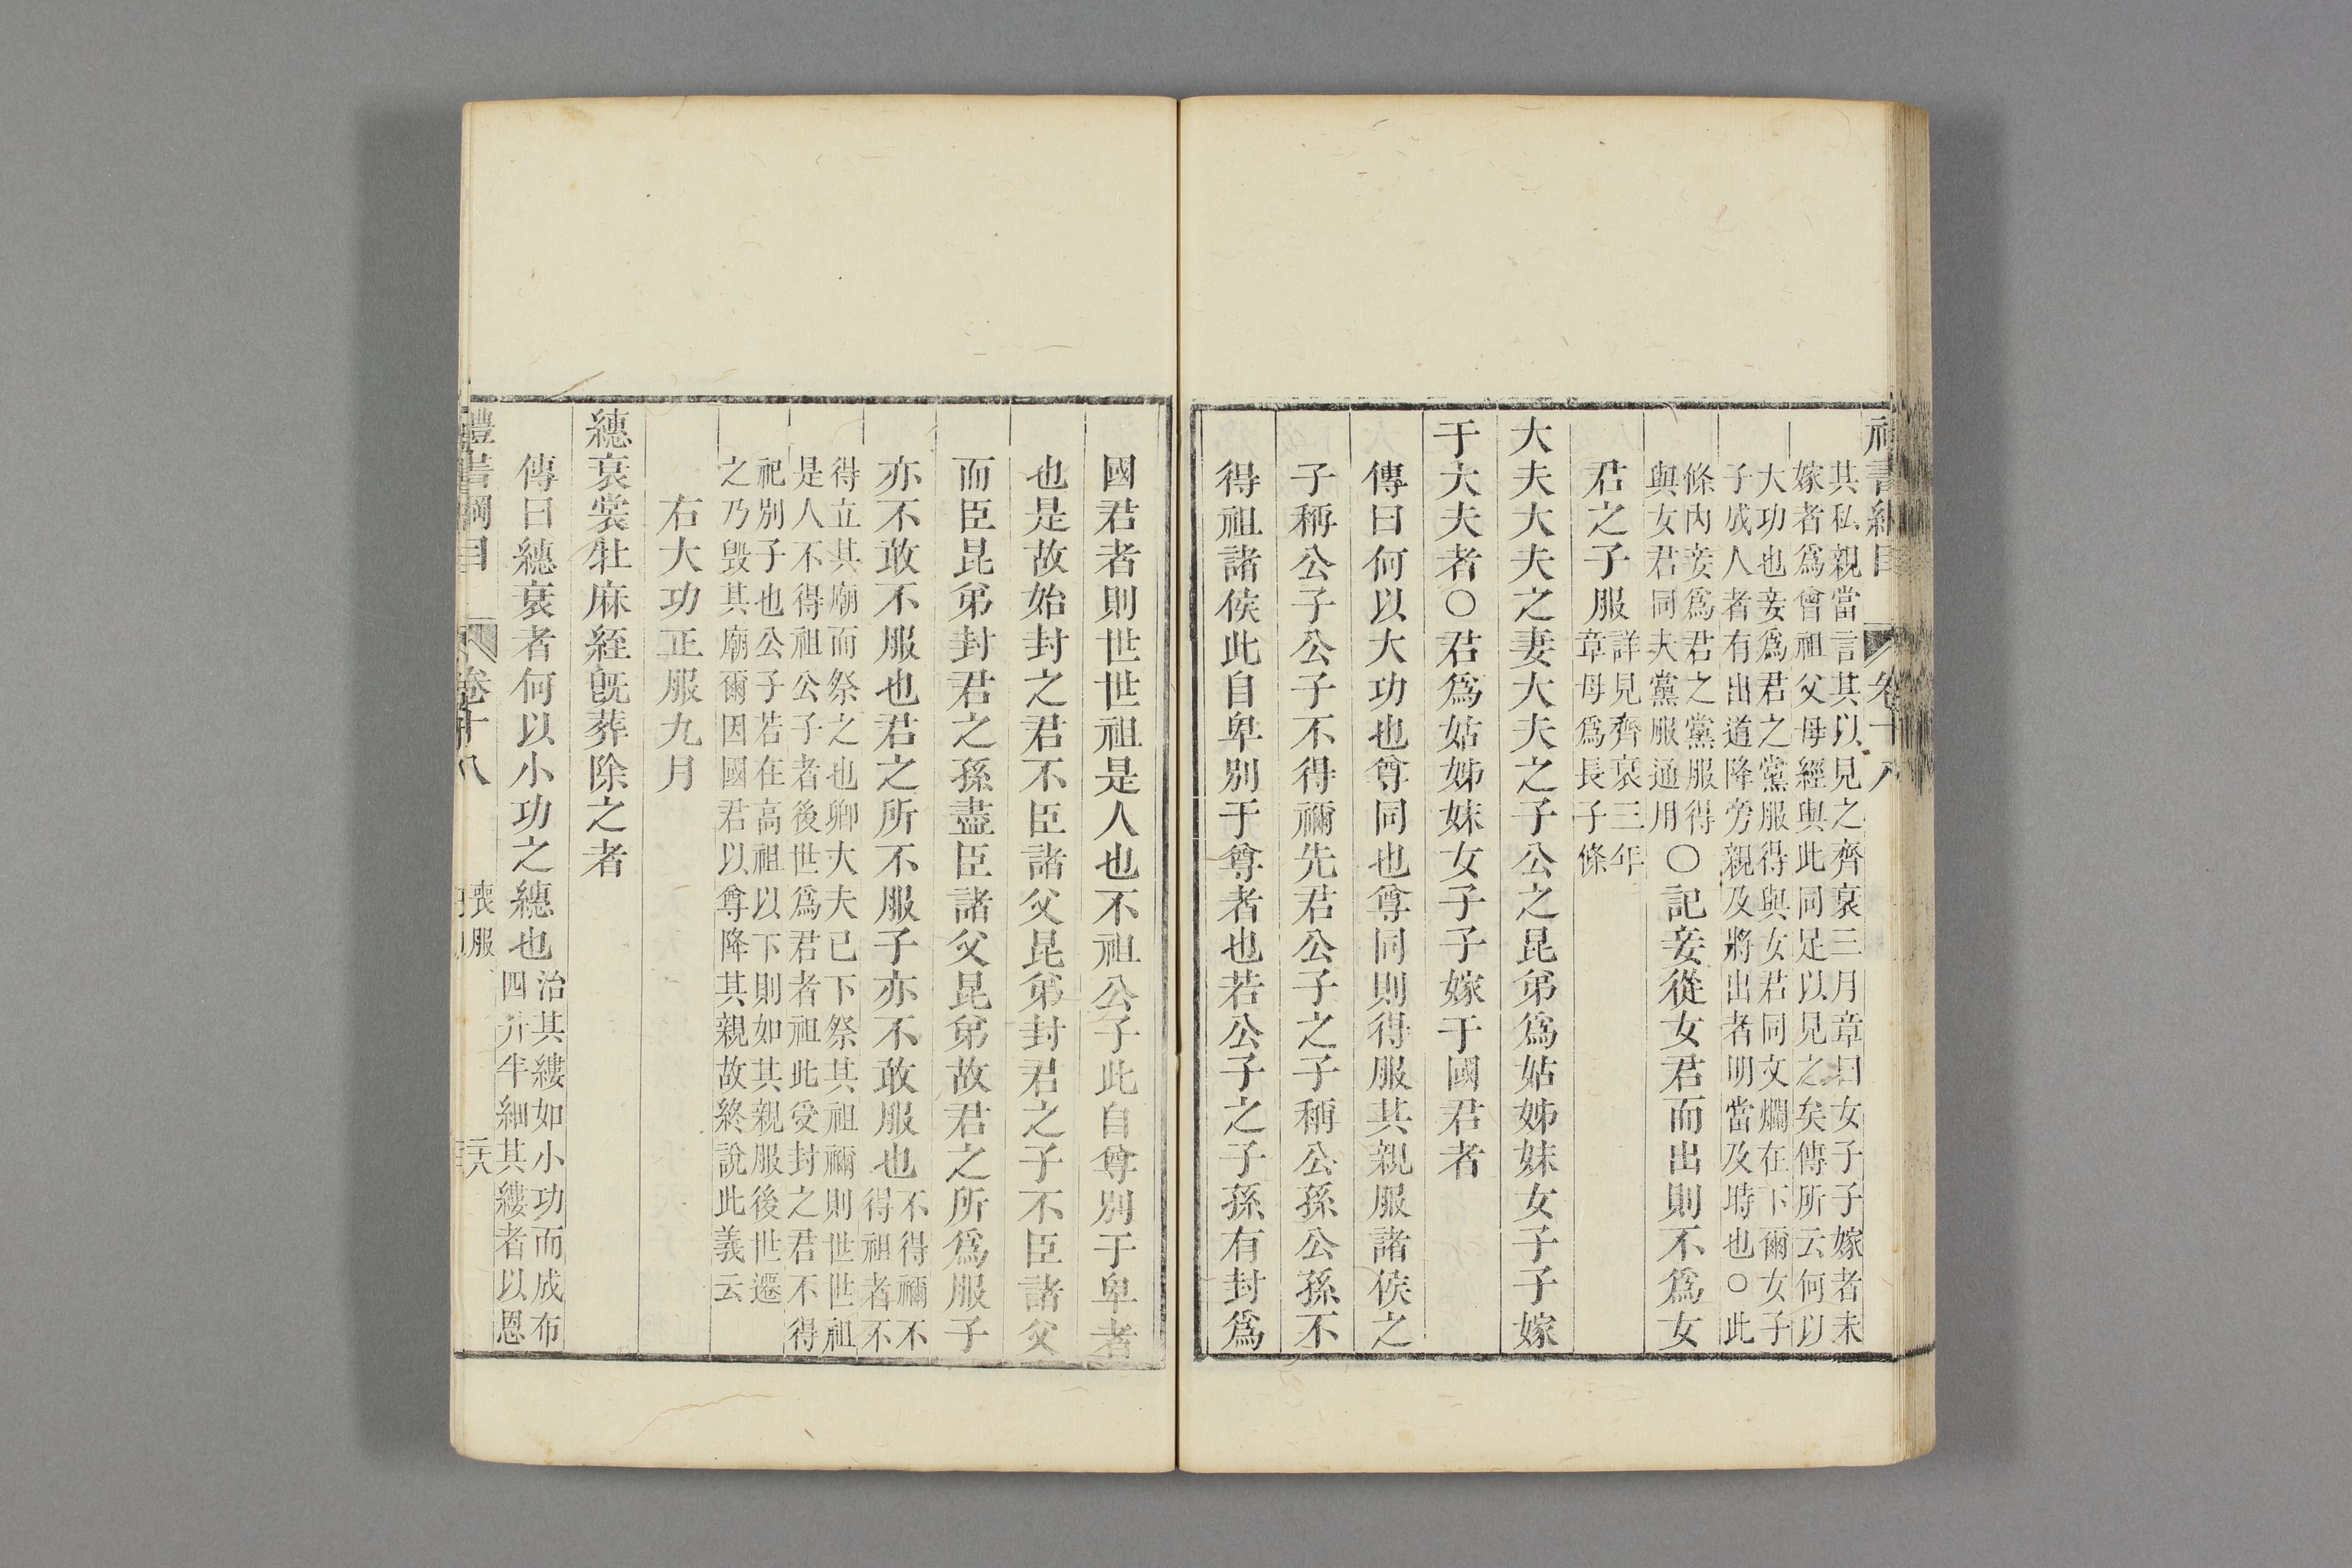 其私親當言其以見之齊衰三月章曰女子子嫁者未
嫁者爲曾祖父母經與此同足以見之矣傳所云何以
大功也妾爲君之黨服得與女君同文爛在下爾女子
子成人者有出道降旁親及將出者明當及時也○此
條內妾爲君之黨服得
與女君同夫黨服通用
○記妾從女君而出則不爲女
君之子服
詳見齊衰三年
章母爲長子條
大夫大夫之妻大夫之子公之昆弟爲姑姊妹女子子嫁
于大夫者○君爲姑姊妹女子子嫁于國君者
傳曰何以大功也尊同也尊同則得服其親服諸侯之
子稱公子公子不得禰先君公子之子稱公孫公孫不
得祖諸侯此自卑別于尊者也若公子之子孫有封爲
國君者則世世祖是人也不祖公子此自尊別于卑者
也是故始封之君不臣諸父昆弟封君之子不臣諸父
而臣昆弟封君之孫盡臣諸父昆弟故君之所爲服子
亦不敢不服也君之所不服子亦不敢服也
不得禰不
得祖者不
得立其廟而祭之也卿大夫已下祭其祖禰則世世祖
是人不得祖公子者後世爲君者祖此受封之君不得
祀別子也公子若在高祖以下則如其親服後世遷
之乃毀其廟爾因國君以尊降其親故終說此義云
右大功正服九月
繐衰裳牡麻絰旣葬除之者
傳曰繐衰者何以小功之繐也
治其縷如小功而成布
四升半細其縷者以恩
禮書綱目
卷十八
喪服
二六